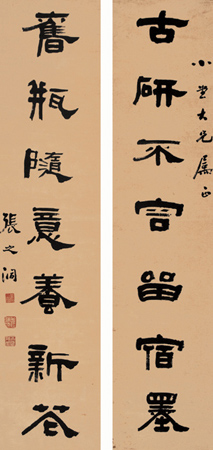 古研不宜留宿墨
小大兄屬正
舊瓶隨意養新花
張之洞